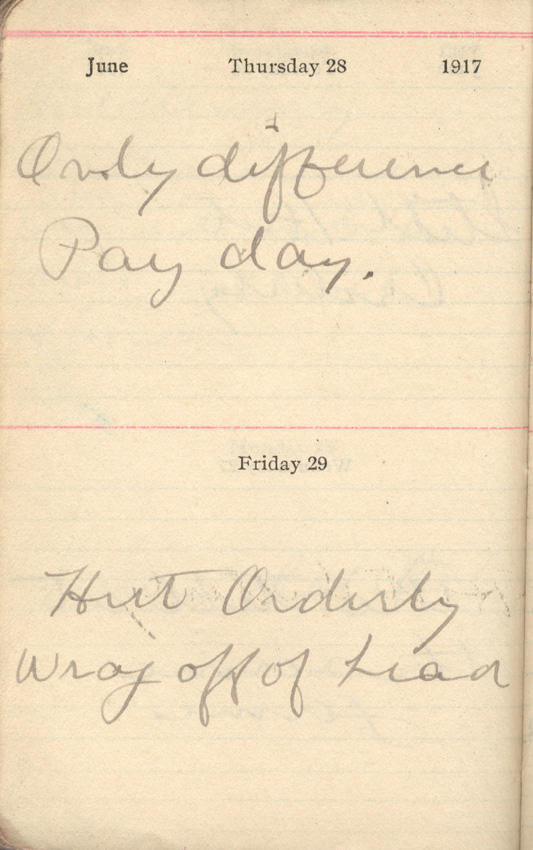 June Thursday 28 1917
Only difference
Pay day.
Friday 29
Hut Orderly
off of head